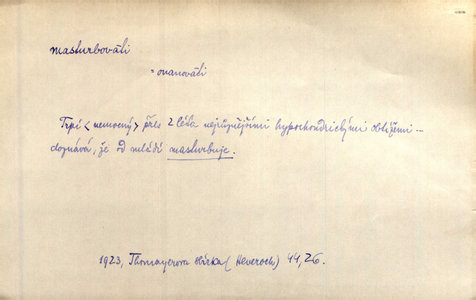 masturbovati
= onanovati
Trpí < nemocný > přes 2 léta nejrůznějšími hypochondrickými obtížemi ...
doznává, že od mládí masturbuje.
1923, Thomayerova sbírka (Heveroch) 44, 26.